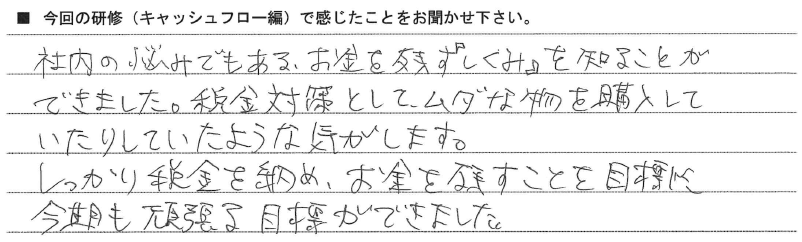 ■ 今回の研修（キャッシュフロー編）で感じたことをお聞かせ下さい。
社内の悩みでもある、お金を残す『しくみ』を知ることが
できました。税金対策として、ムダな物を購入して
いたりしていたような気がします。
しっかり税金を納め、お金を残すことを目標に
今期も頑張る目標ができました。